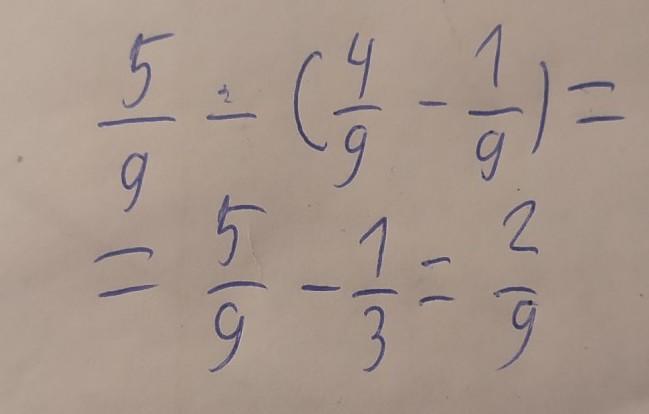 5/9 - (4/9 - 1/9) =
= 5/9 - 1/3 = 2/9